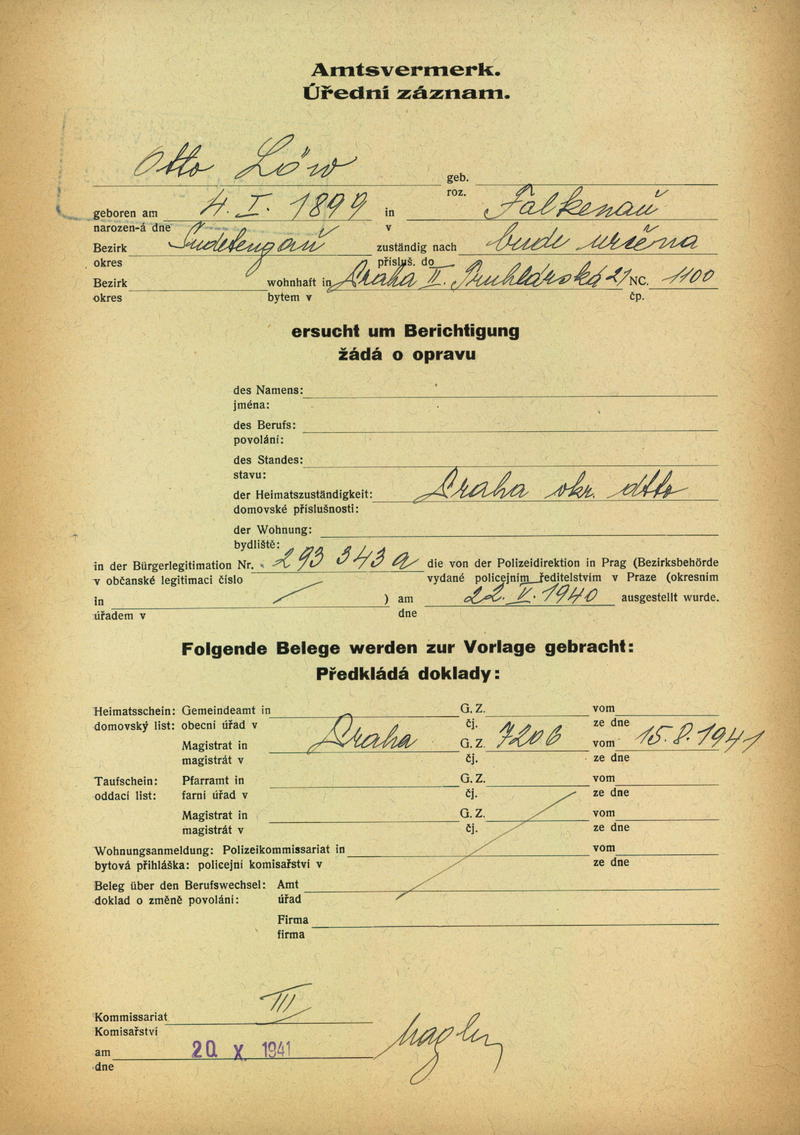 Amtsvermerk.
Úřední záznam.
Otto Löw geb.
roz.
geboren am 4. I. 1899 in Falkenau
narozen-á dne v
Bezirk Sudetengau zuständig nach bude určena
okres přísluš. do
Bezirk wohnhaft in Praha II. Truhlářská 21 NC. 1100
okres bytem v čp.
ersucht um Berichtigung
žádá o opravu
des Namens:
jména:
des Berufs:
povolání:
des Standes:
stavu:
der Heimatszuständigkeit: Praha okr. dtto
domovské příslušnosti:
der Wohnung:
bydliště:
in der Bürgerlegitimation Nr. 293 343 a die von der Polizeidirektion in Prag (Bezirksbehörde
v občanské legitimaci číslo vydané policejním ředitelstvím v Praze (okresním
in ) am 22. V. 1940 ausgestellt wurde.
úřadem v dne
Folgende Belege werden zur Vorlage gebracht:
Předkládá doklady:
Heimatsschein: Gemeindeamt in G. Z. vom
domovský list: obecní úřad v čj. ze dne
Magistrat in Praha G. Z. 7206 vom 15. 8. 1941
magistrát v čj. ze dne
Taufschein: Pfarramt in G. Z. vom
oddací list: farní úřad v čj. ze dne
Magistrat in G. Z. vom
magistrát v čj. ze dne
Wohnungsanmeldung: Polizeikommissariat in vom
bytová přihláška: policejní komisařství v ze dne
Beleg über den Berufswechsel: Amt
doklad o změně povolání: úřad
Firma
firma
Kommissariat III
Komisařství
am 20 X 1941
dne